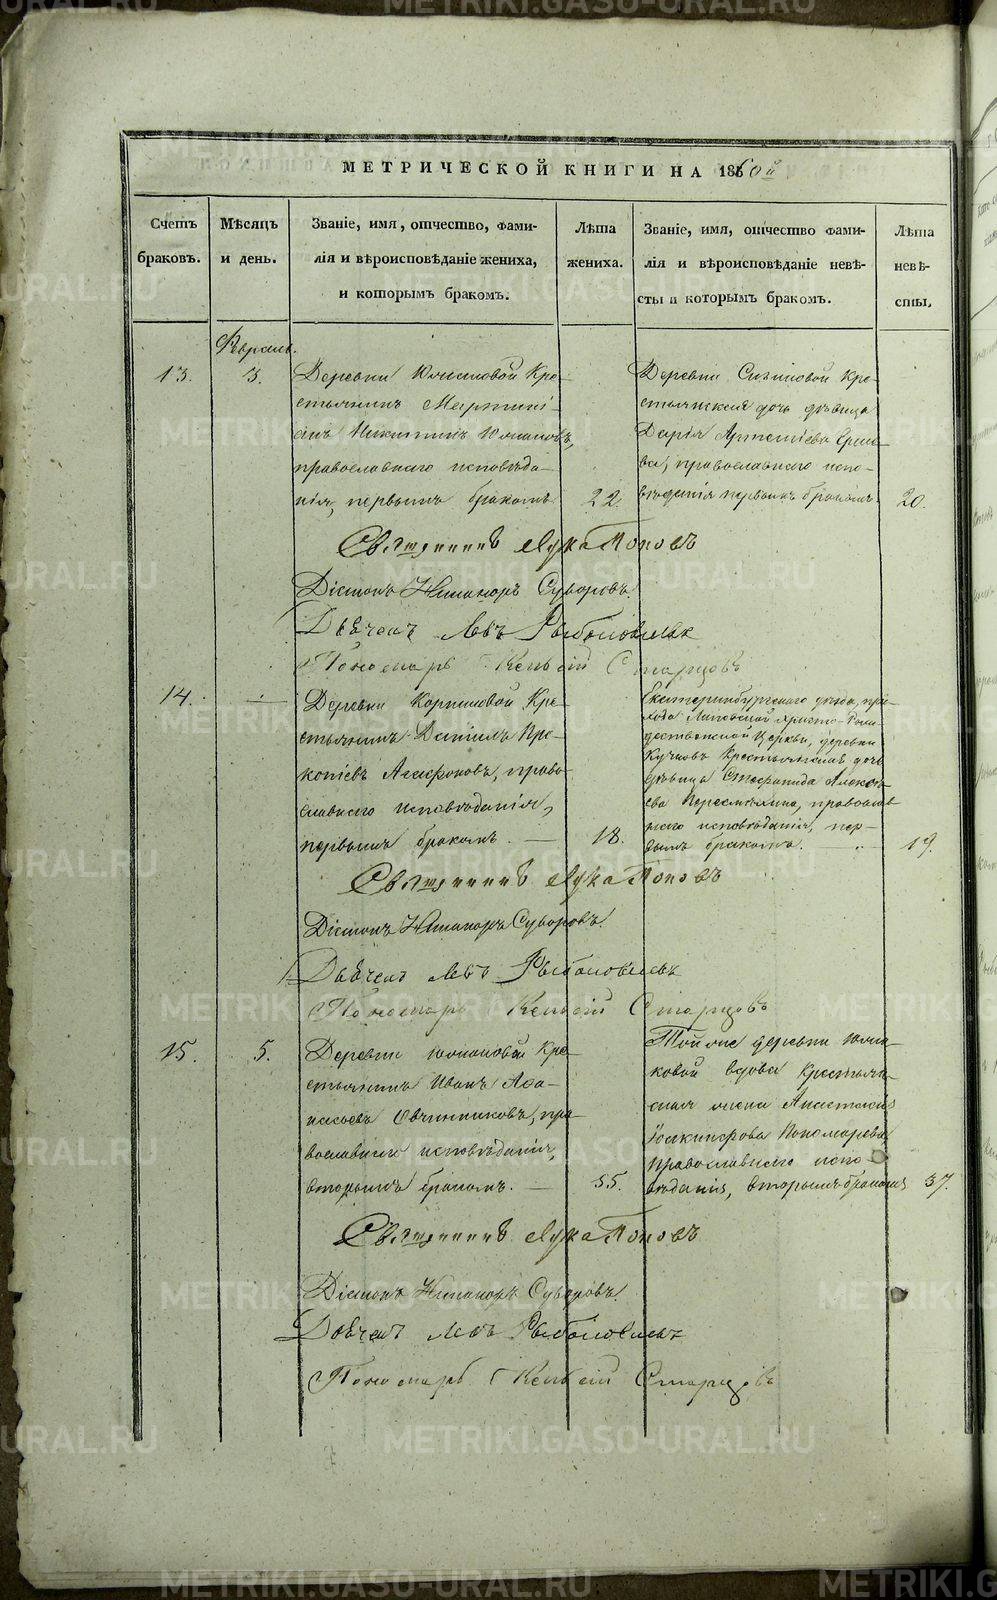 METRIKI.GASO-URAL.RU
МЕТРИЧЕСКОЙ КНИГИ НА 1860й
Счетъ браковъ.
Мѣсяцъ и день.
Званіе, имя, отчество, фами-
лія и вѣроисповѣданіе жениха,
и которымъ бракомъ.
Лѣта жениха.
Званіе, имя, отчество фами-
лія и вѣроисповѣданіе невѣ-
сты и которымъ бракомъ.
Лѣта невѣ-
сты.
Февраль.
13.
3.
Деревни Юмановой Кре-
стьянинъ Мартині-
анъ Никитинъ Юмановъ,
православнаго исповѣда-
нія, первымъ бракомъ
22.
Деревни Сизиковой Кре-
стьянская дочь дѣвица
Дарія Артеміева
православнаго испо-
вѣданія первымъ бракомъ
20.
Священникъ Лука Поповъ
Діаконъ Никаноръ Суворовъ
Дьячекъ Левъ
Пономарь Старцовъ
14.
Деревни Кре-
стьянинъ Даніилъ Про-
копіевъ Агафоновъ, право-
славнаго исповѣданія,
первымъ бракомъ.
18.
Екатеринбургскаго уѣзда, при-
хода Липовской Христо-Рож-
дественской Церкви, деревни
Кучковъ Крестьянская дочь
дѣвица Стефанида Алексѣ-
ева православ
наго исповѣданія, пер-
вымъ бракомъ.
19.
Священникъ Лука Поповъ
Діаконъ Никаноръ Суворовъ
Дьячекъ Левъ
Пономарь Старцовъ
15.
5.
Деревни Юмановой Кре-
стьянинъ Иванъ Афа-
насьевъ Овчинниковъ, пра
вославнаго исповѣданія,
вторымъ бракомъ.
55.
Той же деревни Юма-
новой вдова Крестьян-
ская жена Анастасія
Пономарева,
православнаго испо-
вѣданія, вторымъ бракомъ
37.
Священникъ Лука Поповъ
Діаконъ Никаноръ Суворовъ
Дьячекъ Левъ
Пономарь Старцовъ